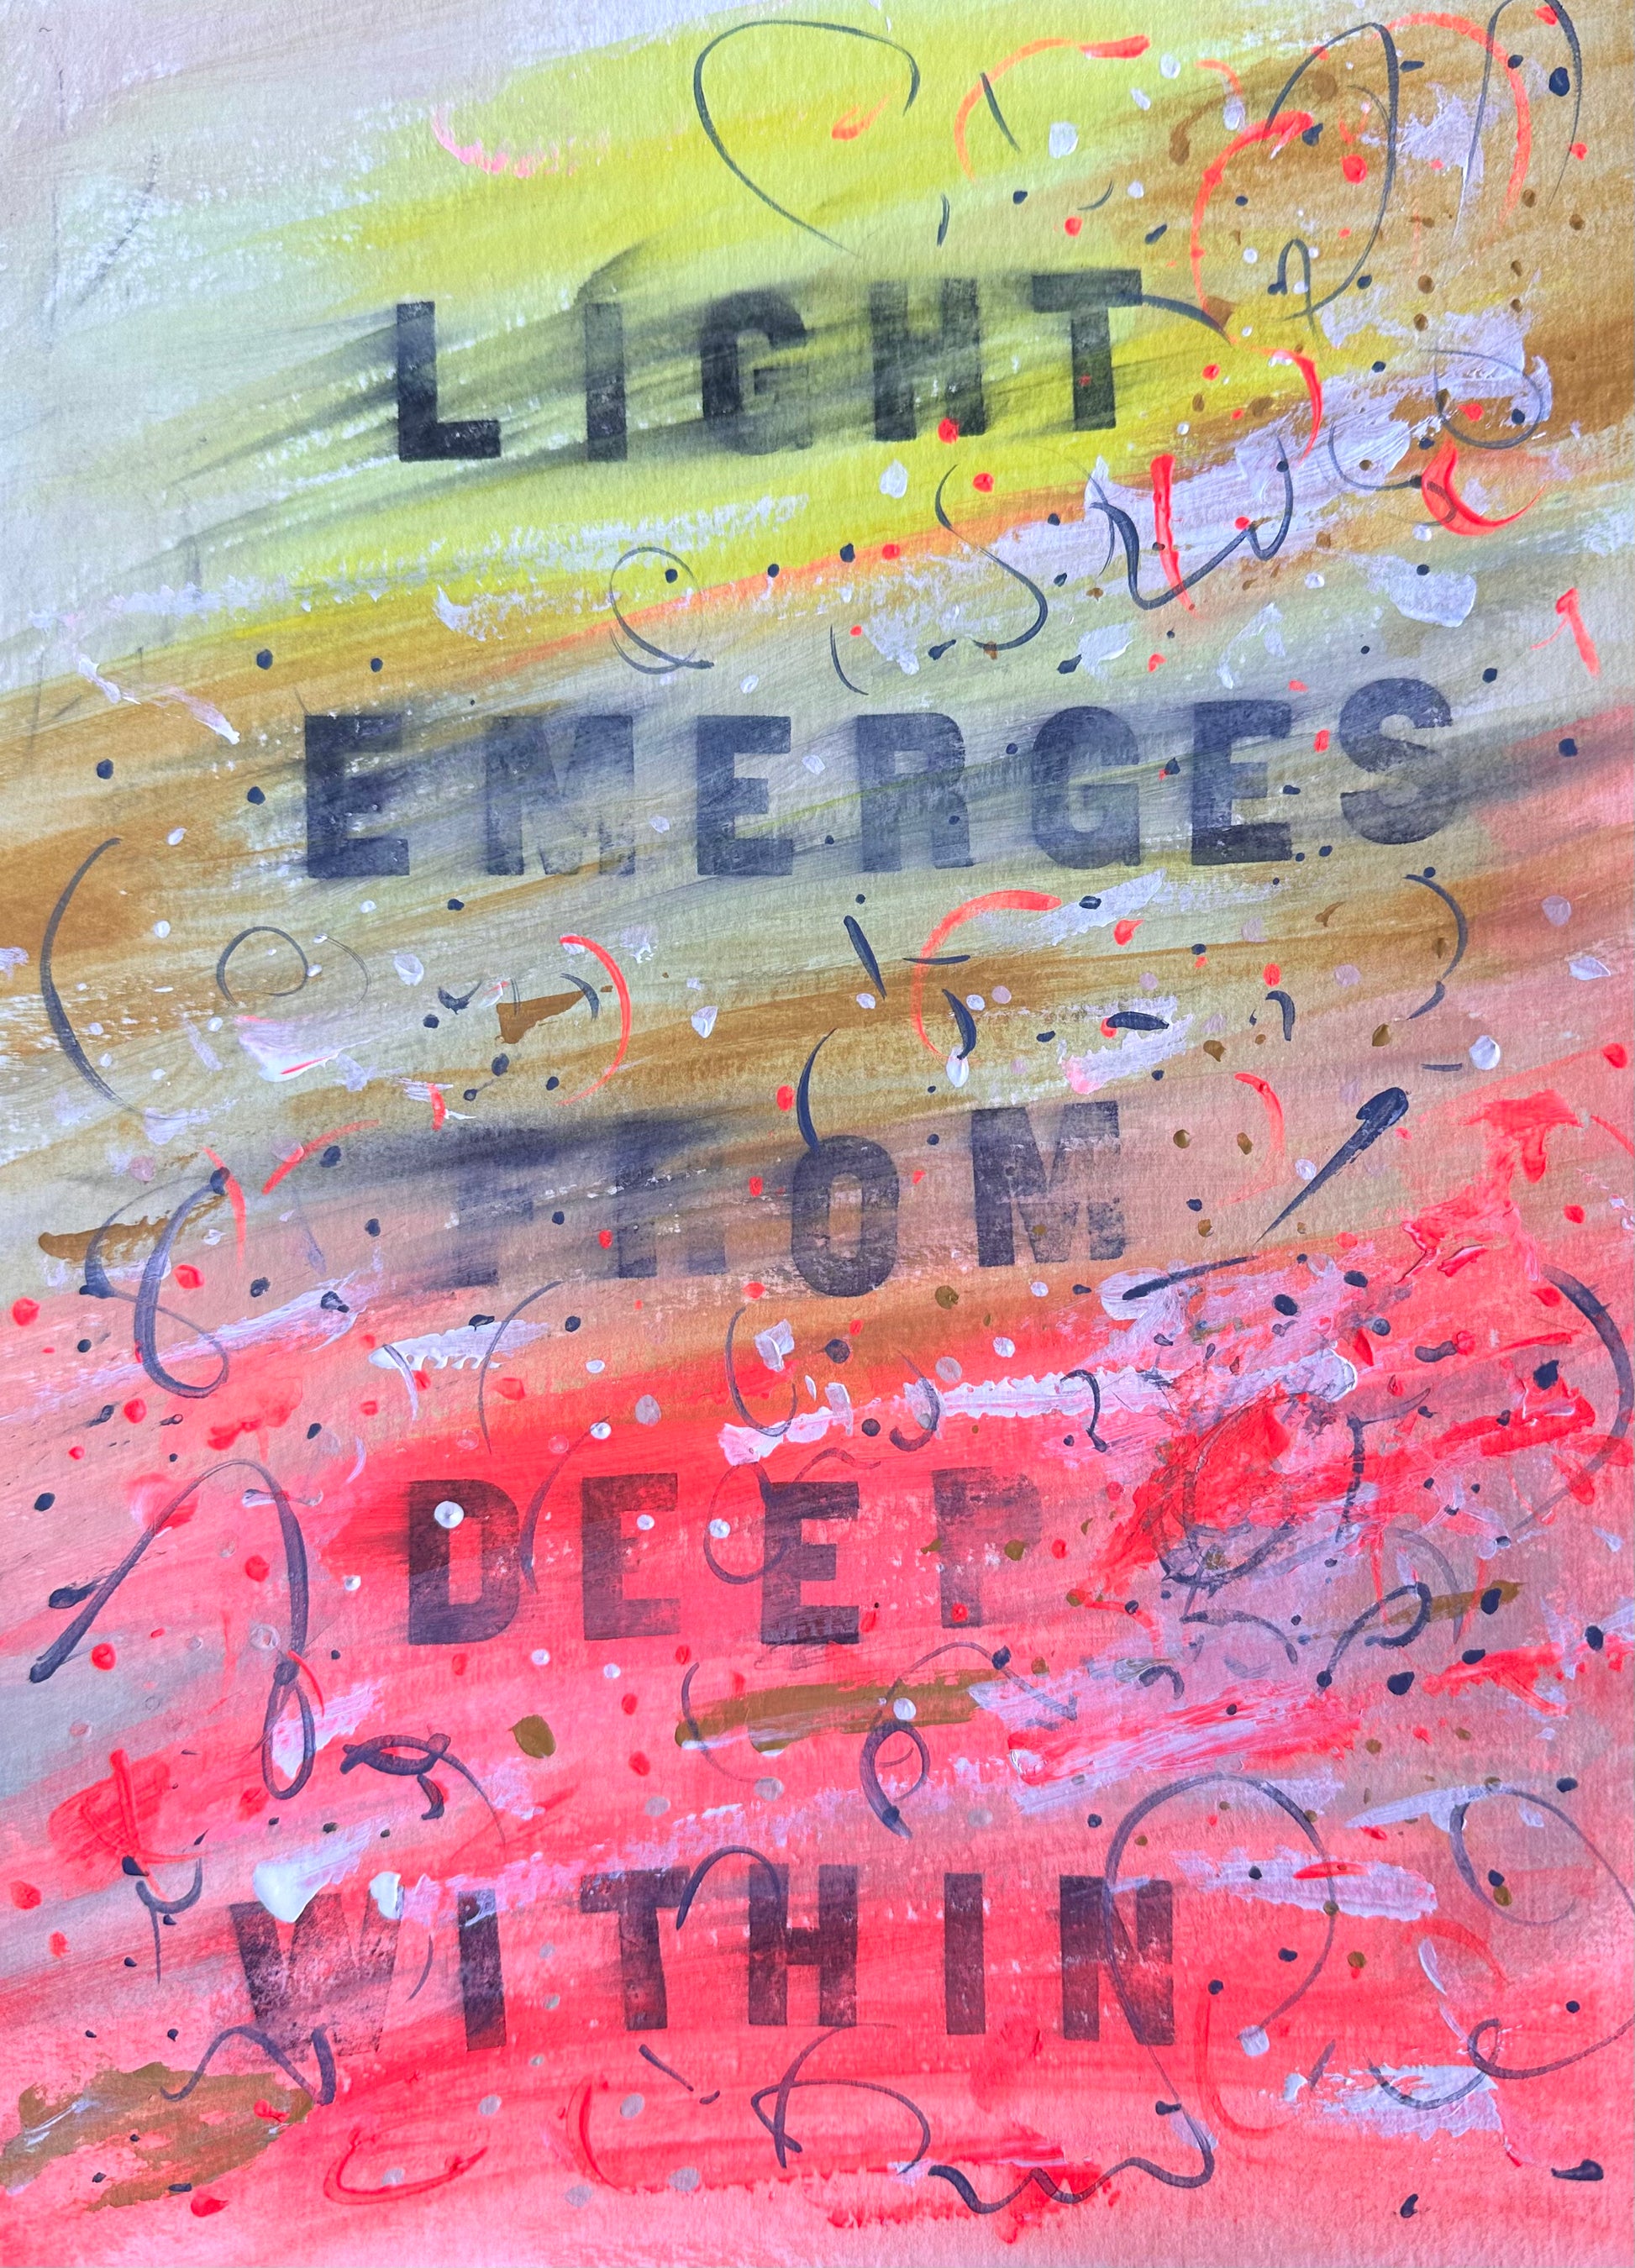 LIGHT
EMERGES
FROM
DEEP
WITHIN